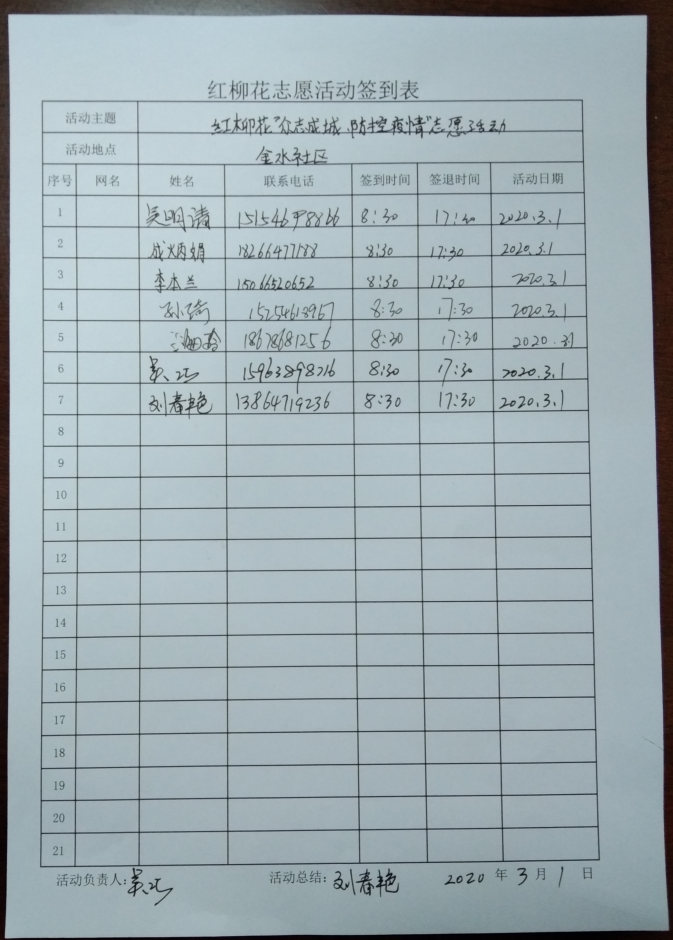 红柳花志愿活动签到表
活动主题 红柳花"众志成城、防控疫情"志愿活动
活动地点 金水社区
序号 网名 姓名 联系电话 签到时间 签退时间 活动日期
1 8:30 2020.3.1
2 成炳娟 18266477188 8:30 17:30 2020.3.1
3 李本兰 15066520652 8:30 17:30 2020.3.1
4 孙琦 15254618967 8:30 17:30 2020.3.1
5 18678681256 8:30 17:30 2020.3.1
6 15963898216 8:30 17:30 2020.3.1
7 刘春艳 13864719236 8:30 17:30 2020.3.1
8
9
10
11
12
13
14
15
16
17
18
19
20
21
活动负责人: 活动总结: 刘春艳 2020 年 3 月 1 日